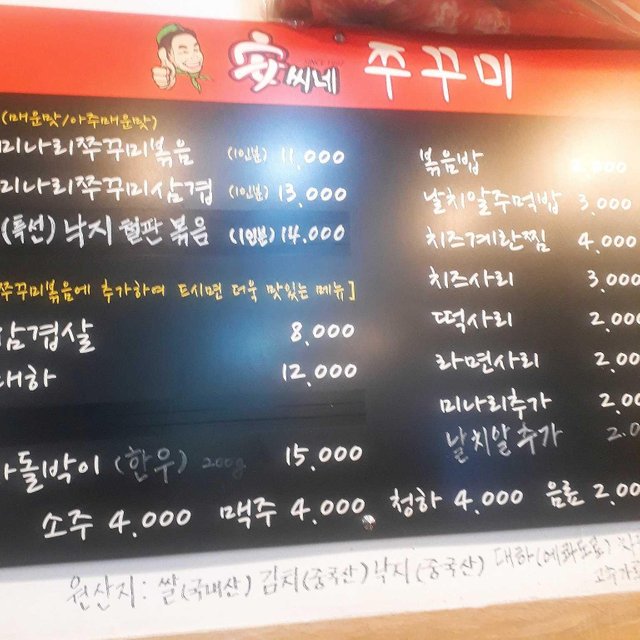 安씨네 쭈꾸미
(매운맛/아주매운맛)
미나리쭈꾸미볶음 (1인분) 11,000
미나리쭈꾸미삼겹 (1인분) 13,000
(특선) 낙지 철판 볶음 (1인분) 14,000
쭈꾸미볶음에 추가하여 드시면 더욱 맛있는 메뉴]
삼겹살 8,000
대하 12,000
차돌박이 (한우) 200g 15,000
볶음밥
날치알주먹밥 3,000
치즈계란찜 4,000
치즈사리 3,000
떡사리 2,000
라면사리 2,00
미나리추가 2,00
날치알 추가 2.0
소주 4,000 맥주 4,000 청하 4,000 음료 2,00
원산지: 쌀(국내산) 김치(중국산) 낙지(중국산) 대하(에콰도르)